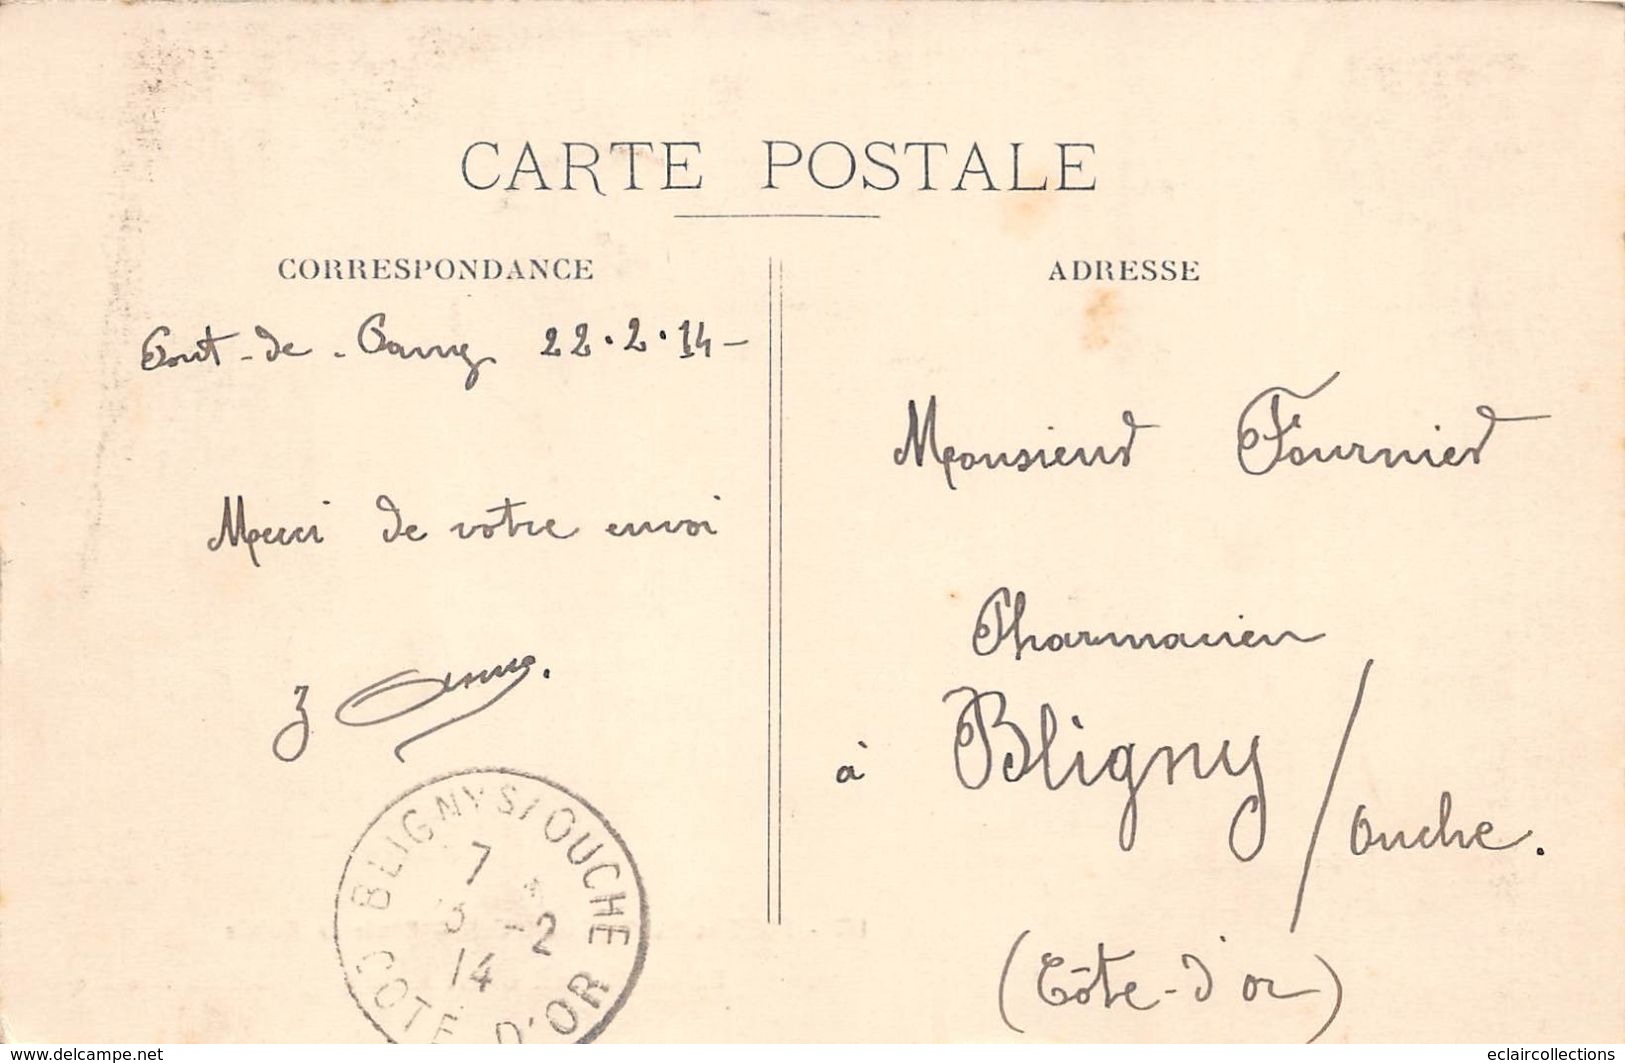 CARTE POSTALE
CORRESPONDANCE
ADRESSE
Pont-de-Pany 22.2.14-
Merci de votre envoi
Monsieur Fournier
Pharmacien
à Bligny / Ouche.
(Côte-d'or)
BLIGNY S/ OUCHE
7
3 -2
14
COTE D'OR
www.delcampe.net
eclaircollections